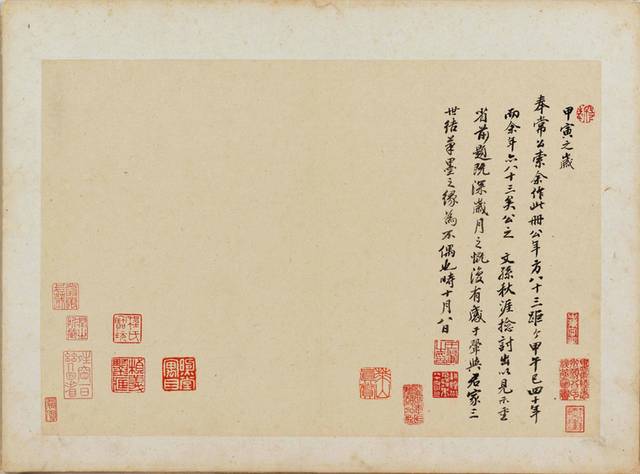 甲寅之歲
奉常公索余作此冊公年方八十三距今甲午已四十年
而余年亦八十三矣公之 文孫秋涯撿討出以見示重
省前題既深歲月之慨復有感于翬與君家三
世結筆墨之緣為不偶也時十月八日